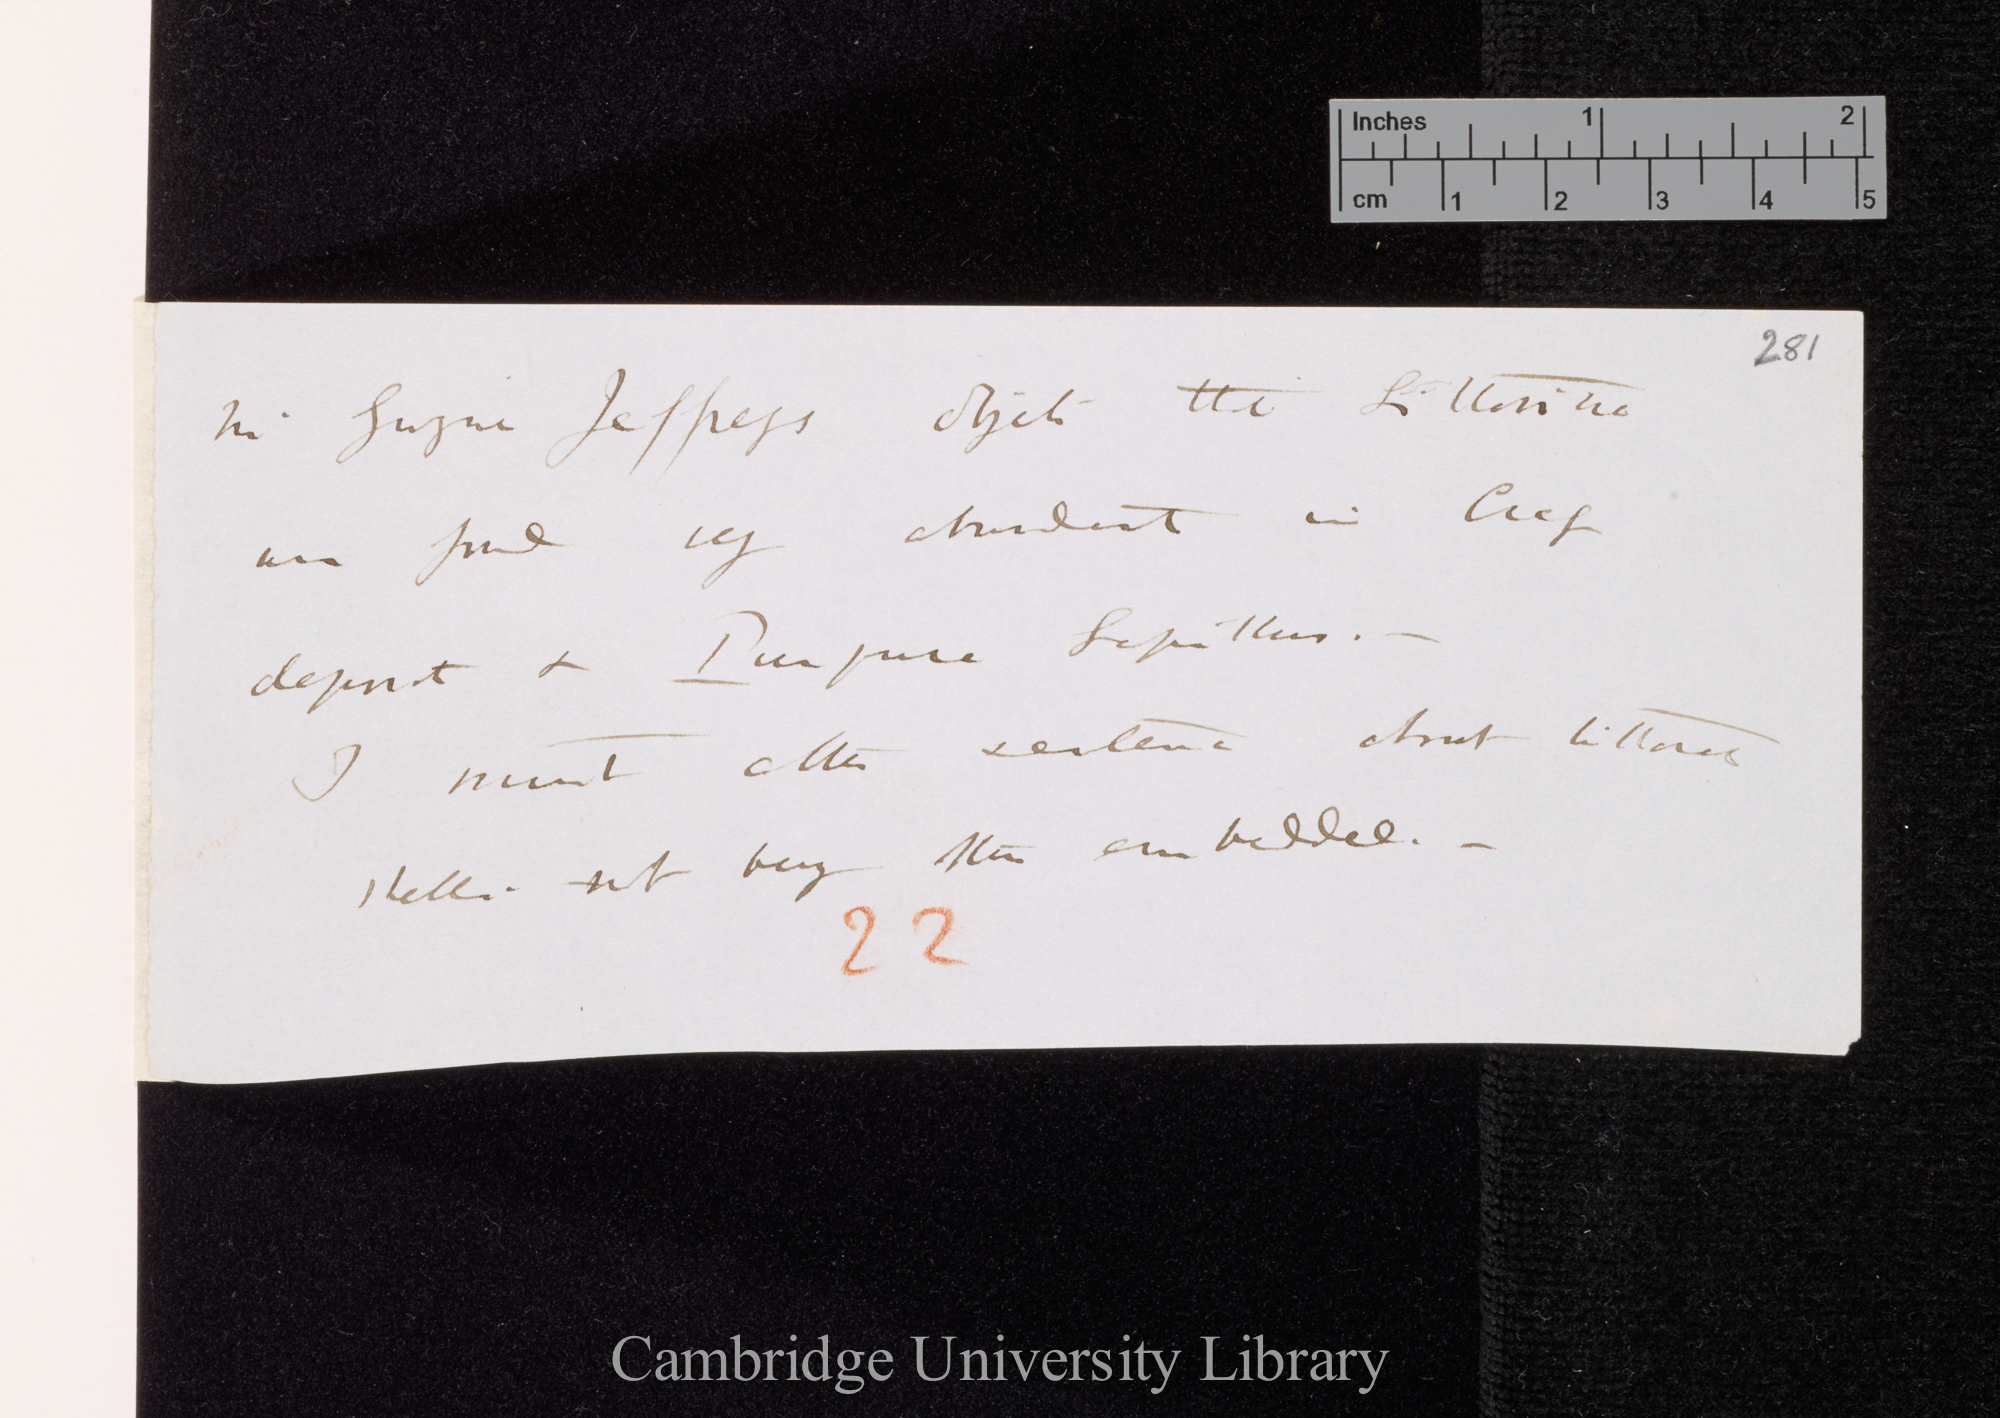 Inches 1 2
cm 1 2 3 4 5
281
Mr Gwyn Jeffreys objects that Littorina
are found very abundant in Crag
deposit & Purpura Lapillus. —
I must alter sentence about littoral
shells not being then embedded. —
22
Cambridge University Library